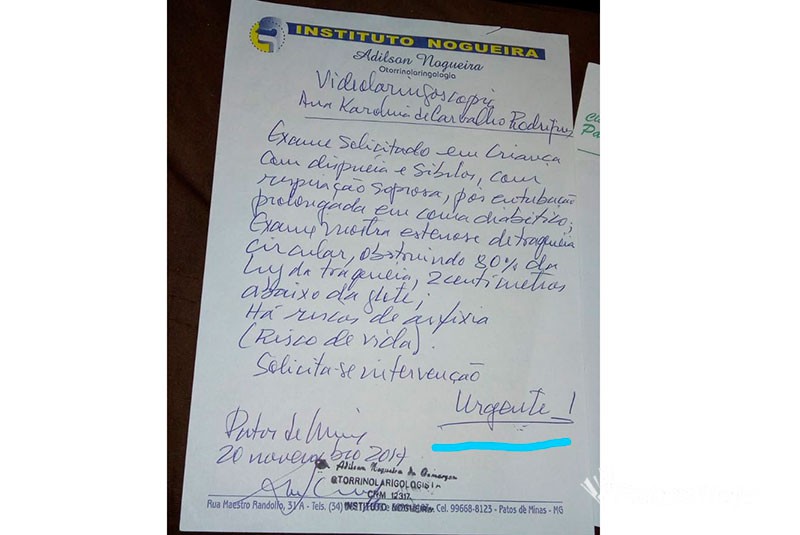 INSTITUTO NOGUEIRA
Adilson Nogueira
Otorrinolaringologia
Videolaringoscopia
Ana Karolina de Carvalho Rodrigues
Exame Solicitado em Criança
com dispnéia e Sibilos, com
respiração soprosa, pós entubação
prolongada em coma diabético;
Exame mostra estenose de traqueia
circular, obstruindo 80% da
luz da traqueia, 2 centímetros
abaixo da glote;
Há riscos de asfixia
(Risco de vida).
Solicita-se intervenção
Urgente!
Patos de Minas
20 novembro 2017
Adilson Nogueira de
OTORRINOLARIGOLOGISTA
CRM 12317
Rua Maestro Randolfo, 31 A - Tels. (34)
INSTITUTO NOGUEIRA
Cel. 99668-8123 - Patos de Minas - MG